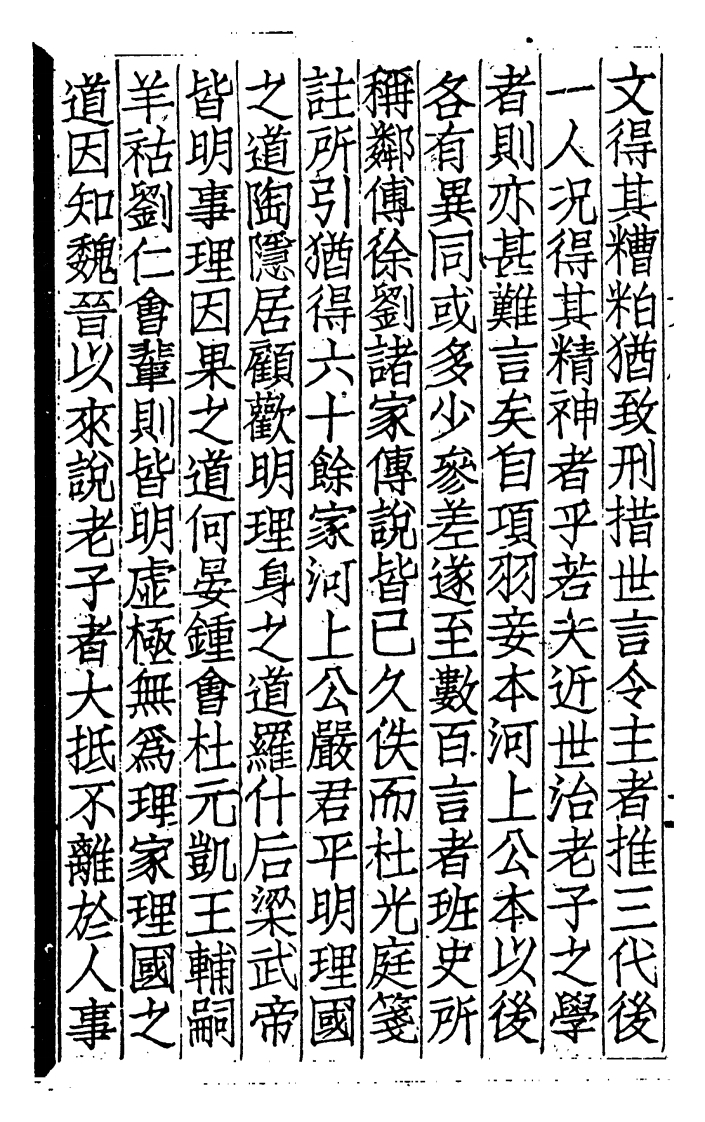 文得其糟粕猶致刑措世言令主者推三代後
一人况得其精神者乎若夫近世治老子之學
者則亦甚難言矣自項羽妾本河上公本以後
各有異同或多少參差遂至數百言者班史所
稱鄰傅徐劉諸家傳說皆已久佚而杜光庭箋
註所引猶得六十餘家河上公嚴君平明理國
之道陶隱居顧歡明理身之道羅什后梁武帝
皆明事理因果之道何晏鍾會杜元凱王輔嗣
羊祜劉仁會輩則皆明虛極無爲理家理國之
道因知魏晉以來說老子者大抵不離於人事